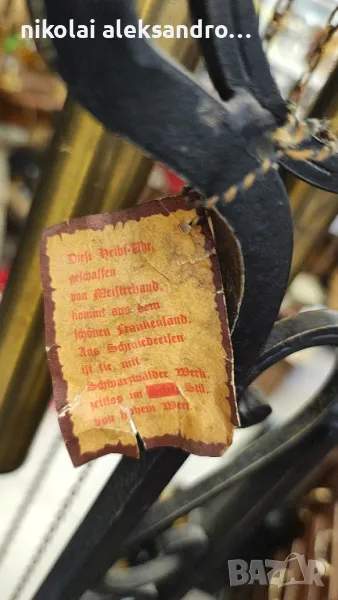 nikolai aleksandro…
Diese Heibl-Uhr,
geschaffen
von Meisterhand,
kommt aus dem
schönen Frankenland.
Aus Schmiedeeisen
ist sie, mit
Schwarzwälder Werk,
zeitlos im Stil,
von hohem Wert.
BAZAR